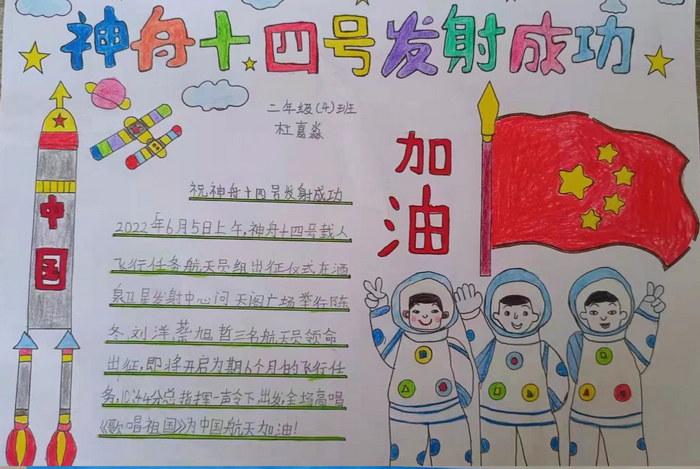 神舟十四号发射成功
二年级(4)班
杜嘉淼
中国
加油
祝神舟十四号发射成功
2022年6月5日上午,神舟十四号载人
飞行任务航天员组出征仪式在酒
泉卫星发射中心问天阁广场举行陈
冬刘洋蔡旭哲三名航天员领命
出征,即将开启为期6个月的飞行任
务,10:44分总指挥一声令下,出发,全场高唱
《歌唱祖国》为中国航天加油!